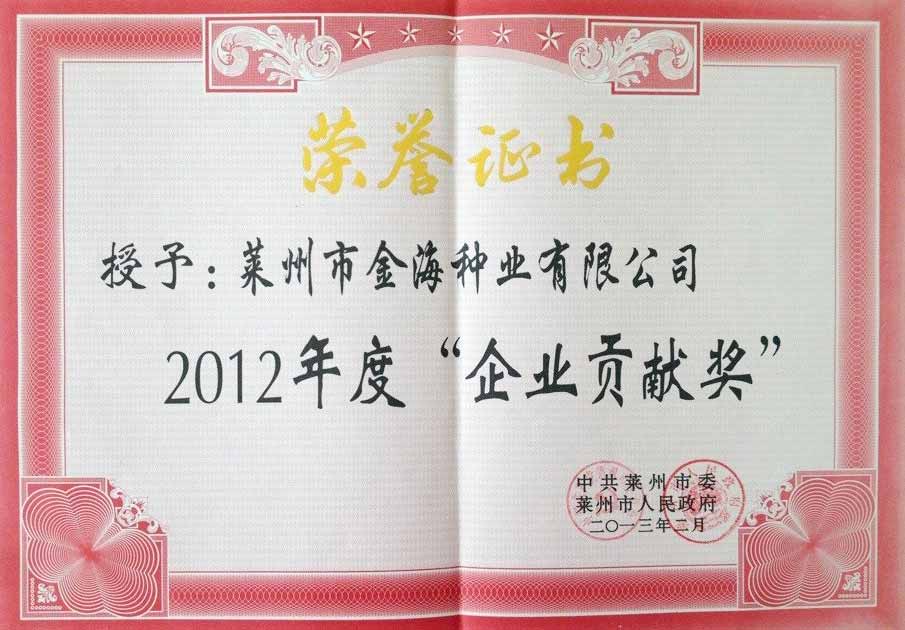 荣誉证书
授予：莱州市金海种业有限公司
2012年度“企业贡献奖”
中共莱州市委
莱州市人民政府
二〇一三年二月